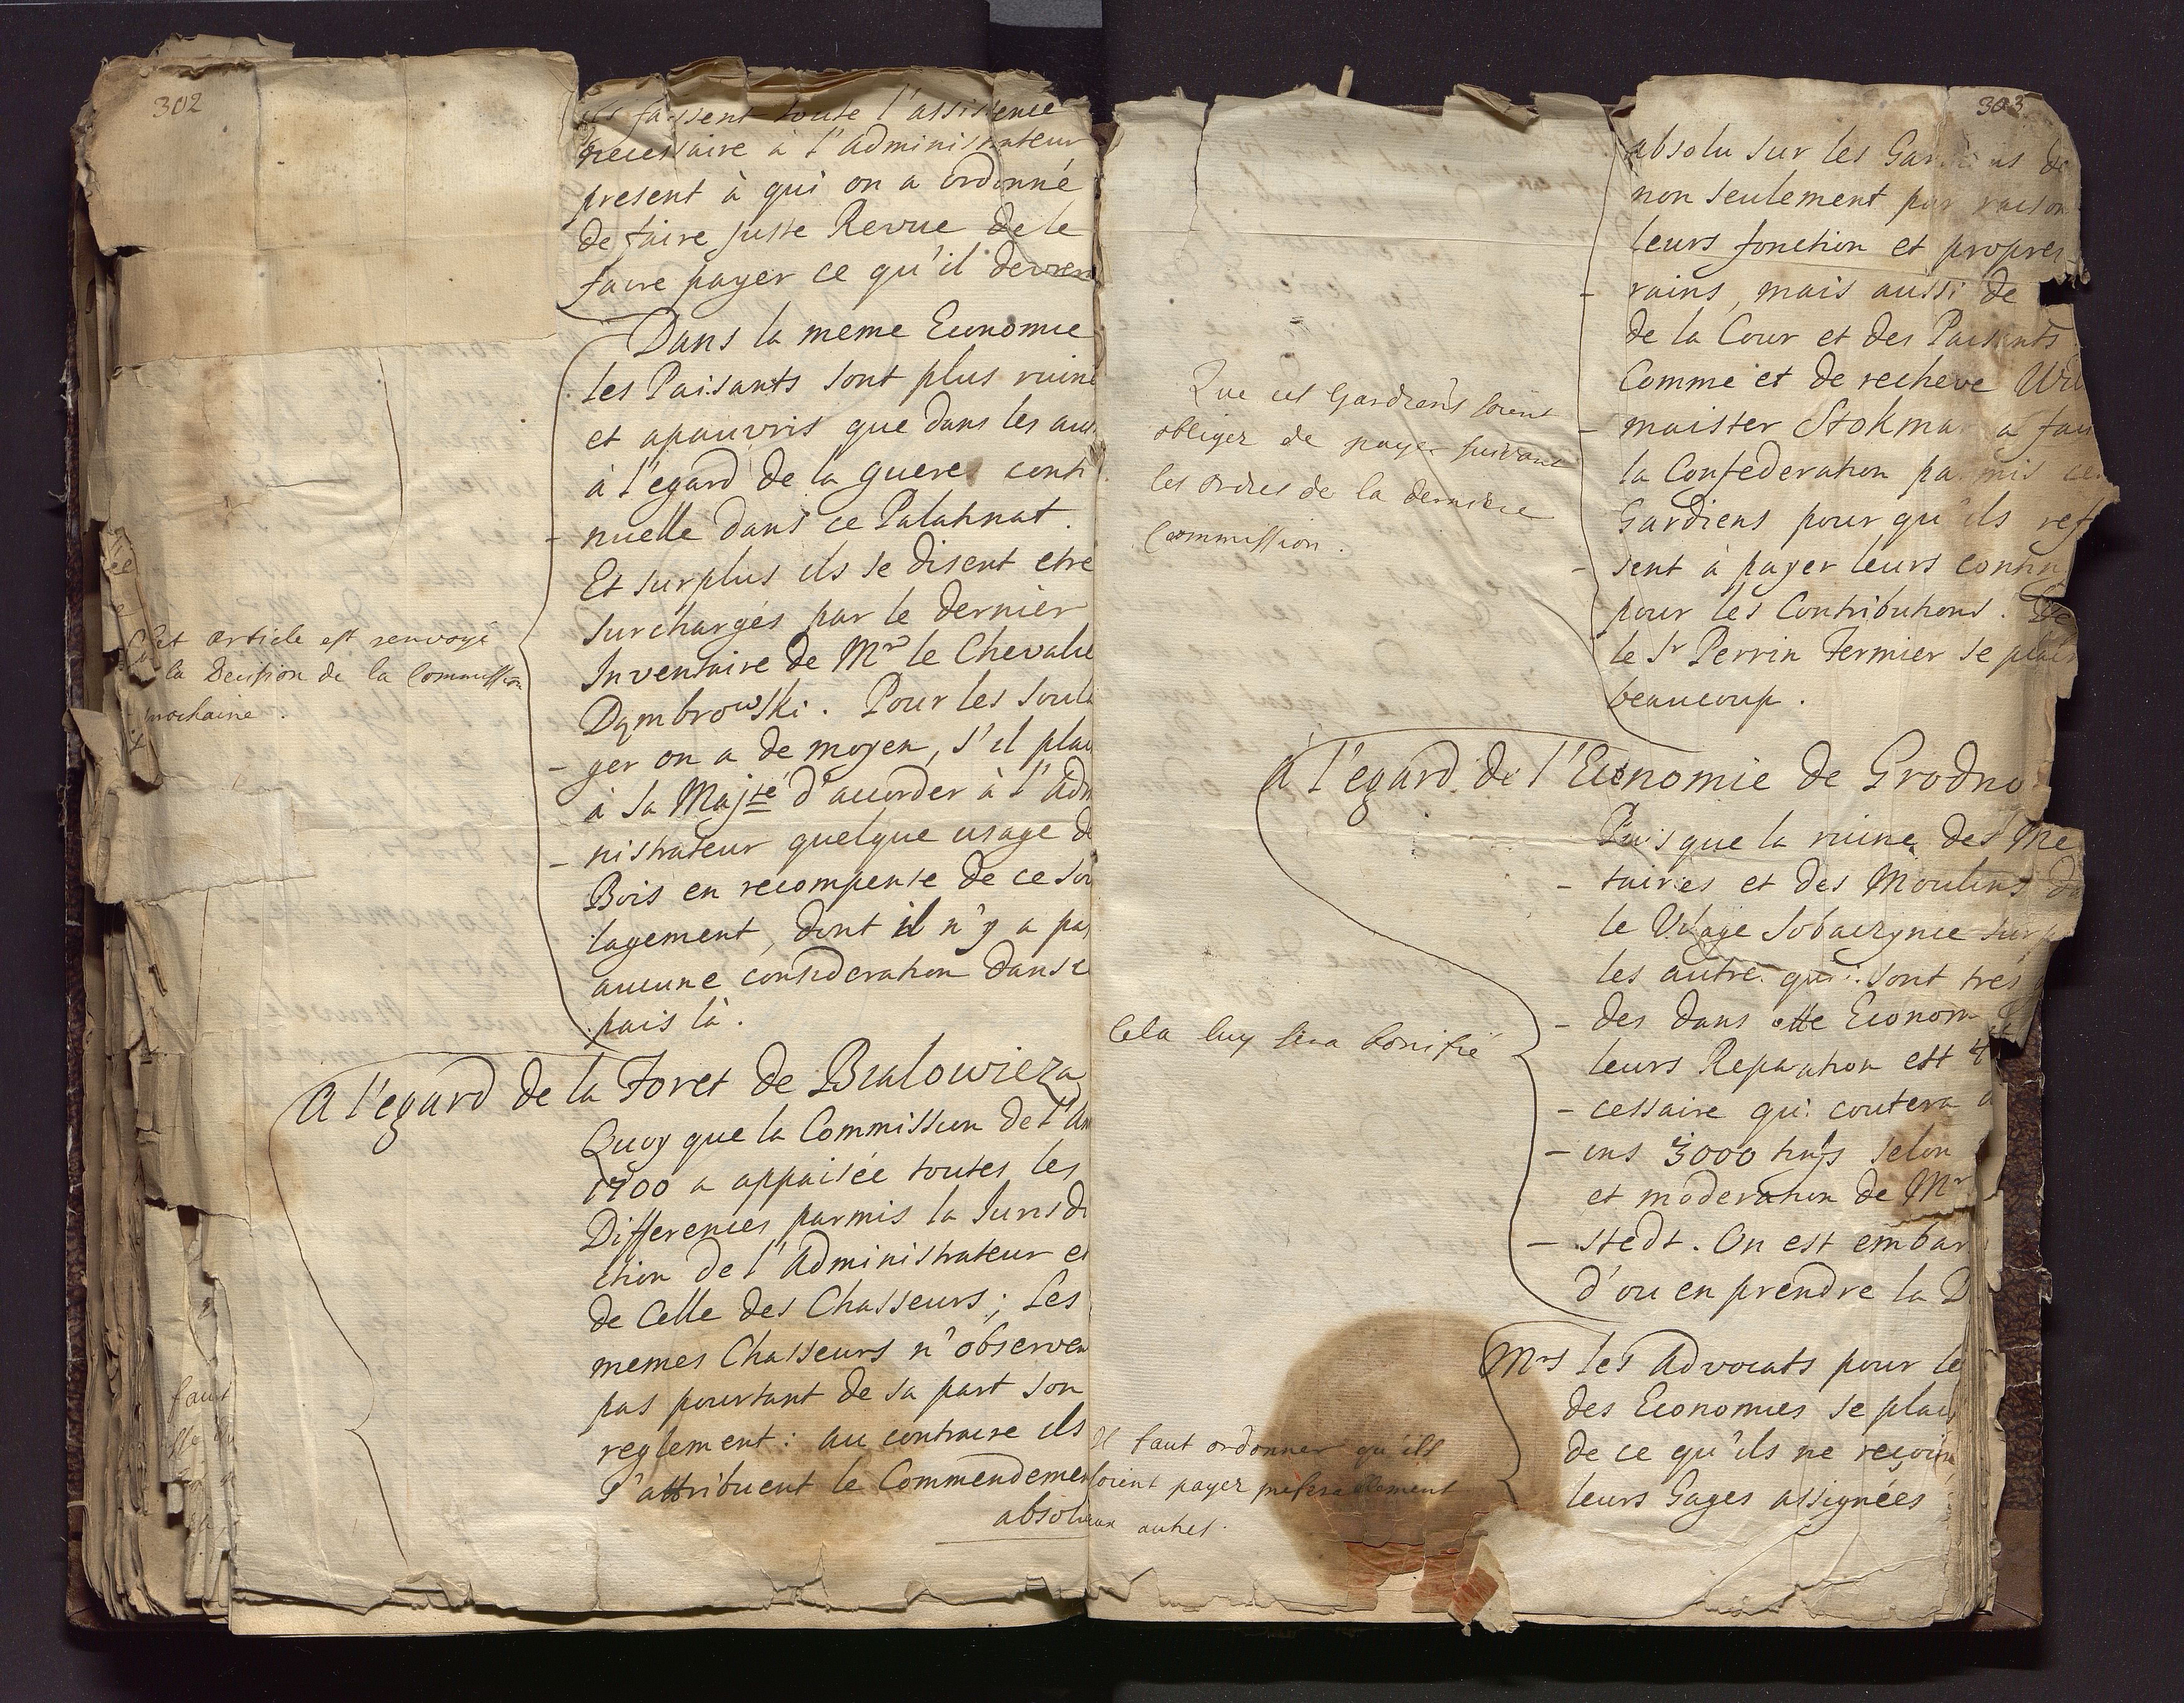 302
fassent toute l'assistence
necessaire à l'Administrateur
present à qui on a ordonné
de faire juste Revue de le
faire payer ce qu'il devren
Dans la meme Economie
les Paisants sont plus ruiné
et apauvris que dans les aut
à l'egard de la guere conti
- nuelle dans ce Palatinat.
Et surplus ils se disent etre
surchargés par le dernier
Inventaire de Mr le Chevalie
Dąmbrowski. Pour les soula
- ger on a de moyen, s'il plai
à Sa Majté d'accorder à l'Adm
- nistrateur quelque usage de
Bois en recompense de ce sou
lagement, dont il n'y a pas
aucune consideration dans ce
pais là.
Cet article est renvoyé
la Decision de la Commission
prochaine.
A l'egard de la Foret de Bialowieza
Quoy que la Commission de l'An
1700 a appaisée toutes les
Differences parmis la Jurisdi
ction de l'Administrateur et
de Celle des Chasseurs; Les
memes Chasseurs n'observen
pas pourtant de sa part son
reglement: au contraire ils
s'attribuent le Commendement
absolu
303
absolu sur les Gardiens de
non seulement par raison
leurs fonction et propres
- rains, mais aussi de
de la Cour et des Paisants
Comme et de recheve Wil
- maister Stokma a fai
la Confederation parmis ces
Gardiens pour qu'ils ref
- sent à payer leurs contin
pour les Contributions. De
le Sr Perrin Fermier se plain
beaucoup.
Que ces Gardiens soient
obligez de payer suivant
les ordres de la derniere
Commission.
A l'egard de l'Economie de Grodno
Puis que la ruine des Me
- tairies et des Moulins da
le Vilage Sobaczynce surp
les autre qui sont tres g
- des dans cette Econom
leurs Reparation est
- cessaire qui coutera a
- ens 3000 selon
et moderation de Mr
- stedt. On est embar
d'ou en prendre la D
Cela luy sera bonifié
Mrs les Advocats pour le
des Economies se plai
de ce qu'ils ne reçoive
leurs Gages assignées
Il faut ordonner qu'ils
soient payez preferablement
aux autres.
faut